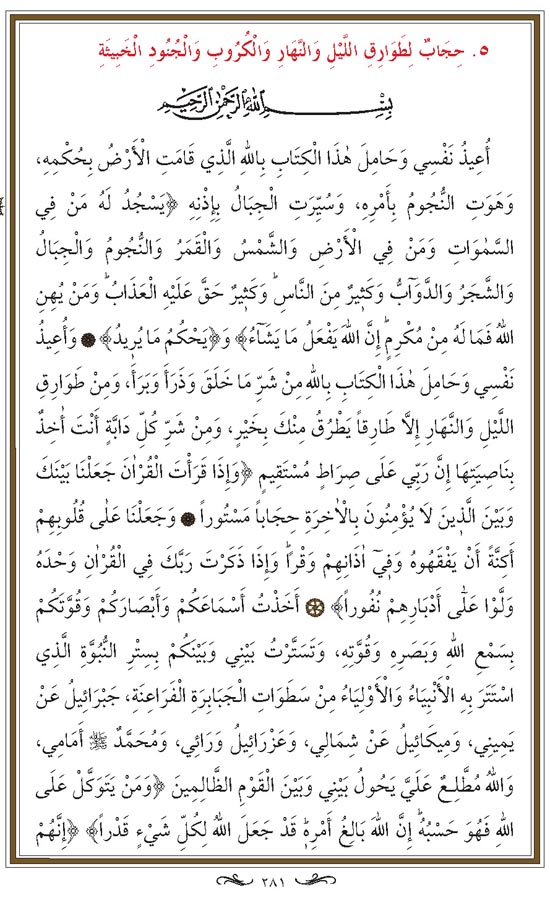 ٥. حِجَابٌ لِطَوَارِقِ اللَّيْلِ وَالنَّهَارِ وَالْكُرُوبِ وَالْجُنُودِ الْخَبِيثَةِ
بِسْمِ اللهِ الرَّحْمٰنِ الرَّحِيمِ
أُعِيذُ نَفْسِي وَحَامِلَ هٰذَا الْكِتَابِ بِاللهِ الَّذِي قَامَتِ الْأَرْضُ بِحُكْمِهِ،
وَهَوَتِ النُّجُومُ بِأَمْرِهِ، وَسُيِّرَتِ الْجِبَالُ بِإِذْنِهِ ﴿يَسْجُدُ لَهُ مَنْ فِي
السَّمٰوَاتِ وَمَنْ فِي الْأَرْضِ وَالشَّمْسُ وَالْقَمَرُ وَالنُّجُومُ وَالْجِبَالُ
وَالشَّجَرُ وَالدَّوَآبُّ وَكَثِيرٌ مِنَ النَّاسِۜ وَكَثِيرٌ حَقَّ عَلَيْهِ الْعَذَابُۜ وَمَنْ يُهِنِ
اللهُ فَمَا لَهُ مِنْ مُكْرِمٍۜ إِنَّ اللهَ يَفْعَلُ مَا يَشَآءُ﴾ وَ﴿يَحْكُمُ مَا يُرِيدُ﴾ ۞ وَأُعِيذُ
نَفْسِي وَحَامِلَ هٰذَا الْكِتَابِ بِاللهِ مِنْ شَرِّ مَا خَلَقَ وَذَرَأَ وَبَرَأَ، وَمِنْ طَوَارِقِ
اللَّيْلِ وَالنَّهَارِ إِلَّا طَارِقاً يَطْرُقُ مِنْكَ بِخَيْرٍ، وَمِنْ شَرِّ كُلِّ دَابَّةٍ أَنْتَ اٰخِذٌ
بِنَاصِيَتِهَا إِنَّ رَبِّي عَلَى صِرَاطٍ مُسْتَقِيمٍ ﴿وَإِذَا قَرَأْتَ الْقُرْاٰنَ جَعَلْنَا بَيْنَكَ
وَبَيْنَ الَّذِينَ لَا يُؤْمِنُونَ بِالْاٰخِرَةِ حِجَاباً مَسْتُوراً ۞ وَجَعَلْنَا عَلٰى قُلُوبِهِمْ
أَكِنَّةً أَنْ يَفْقَهُوهُ وَفِيٓ اٰذَانِهِمْ وَقْراًۜ وَإِذَا ذَكَرْتَ رَبَّكَ فِي الْقُرْاٰنِ وَحْدَهُ
وَلَّوْا عَلٰٓى أَدْبَارِهِمْ نُفُوراً﴾ ۞ أَخَذْتُ أَسْمَاعَكُمْ وَأَبْصَارَكُمْ وَقُوَّتَكُمْ
بِسَمْعِ اللهِ وَبَصَرِهِ وَقُوَّتِهِ، وَتَسَتَّرْتُ بَيْنِي وَبَيْنَكُمْ بِسِتْرِ النُّبُوَّةِ الَّذِي
اسْتَتَرَ بِهِ الْأَنْبِيَاءُ وَالْأَوْلِيَاءُ مِنْ سَطَوَاتِ الْجَبَابِرَةِ الْفَرَاعِنَةِ، جَبْرَائِيلُ عَنْ
يَمِينِي، وَمِيكَائِيلُ عَنْ شِمَالِي، وَعَزْرَائِيلُ وَرَائِي، وَمُحَمَّدٌ ﷺ أَمَامِي،
وَاللهُ مُطَّلِعٌ عَلَيَّ يَحُولُ بَيْنِي وَبَيْنَ الْقَوْمِ الظَّالِمِينَ ﴿وَمَنْ يَتَوَكَّلْ عَلَى
اللهِ فَهُوَ حَسْبُهُۜ إِنَّ اللهَ بَالِغُ أَمْرِهِۜ قَدْ جَعَلَ اللهُ لِكُلِّ شَيْءٍ قَدْراً﴾ ﴿إِنَّهُمْ
٢٨١